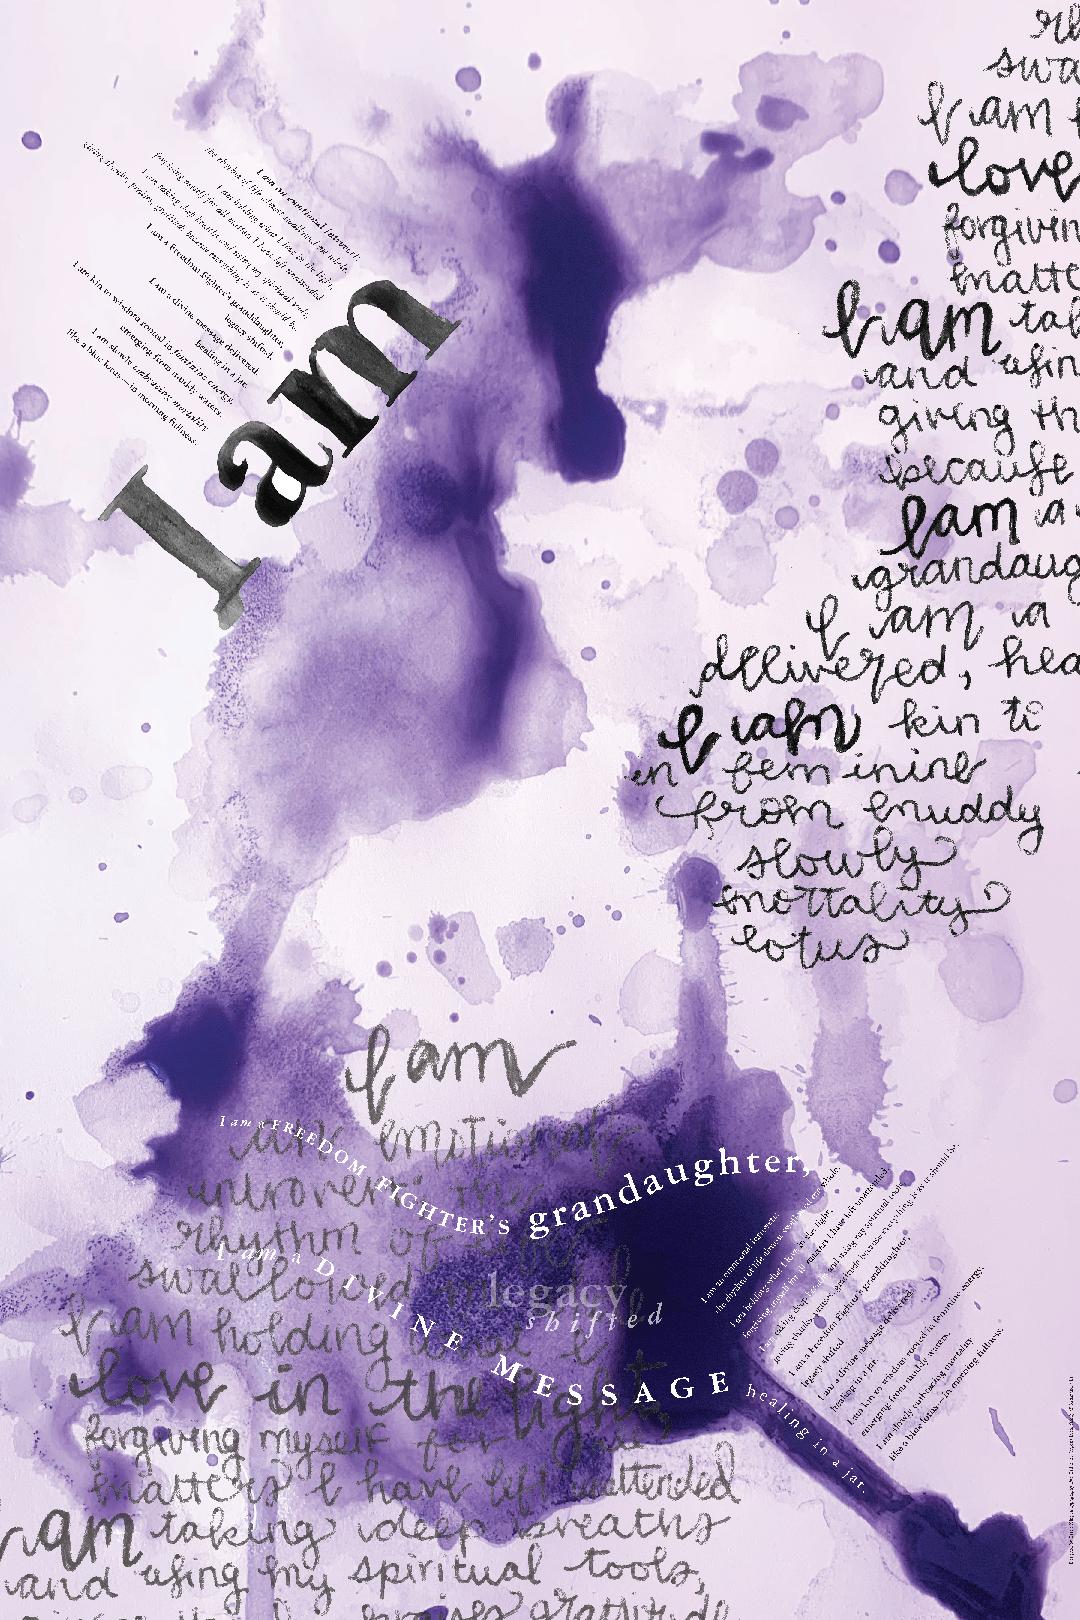 I am an emotional introvert:
the rhythm of life almost swallowed me whole.
I am holding what I love in the light,
forgiving myself for all matters I have left unattended.
I am taking deep breaths and using my spiritual tools,
giving thanks, praises, gratitude because everything is as it should be.
I am a Freedom Fighter's granddaughter,
legacy shifted.
I am a divine message delivered,
healing in a jar.
I am kin to wisdom rooted in feminine energy,
emerging from muddy waters.
I am slowly embracing mortality
like a blue lotus—in morning fullness.
I am
swa
I am
love
forgivin
matte
I am tak
and using
giving th
because
I am a
grandaug
I am a
delivered, hea
I am kin to
in feminine
from muddy
slowly
mortality
lotus
I am
an emotional
introvert the
rhythm of
swallowed
I am holding what I
love in the light,
forgiving myself for
matters I have left unattended
I am taking deep breaths
and using my spiritual tools,
praises gratitude
I am a FREEDOM FIGHTER'S grandaughter,
legacy
shifted
I am a DIVINE MESSAGE healing in a jar.
I am an emotional introvert:
the rhythm of life almost swallowed me whole.
I am holding what I love in the light,
forgiving myself for all matters I have left unattended.
I am taking deep breaths and using my spiritual tools,
giving thanks, praises, gratitude because everything is as it should be.
I am a Freedom Fighter's granddaughter,
legacy shifted
I am a divine message delivered,
healing in a jar.
I am kin to wisdom rooted in feminine energy,
emerging from muddy waters.
I am slowly embracing mortality
like a blue lotus—in morning fullness.